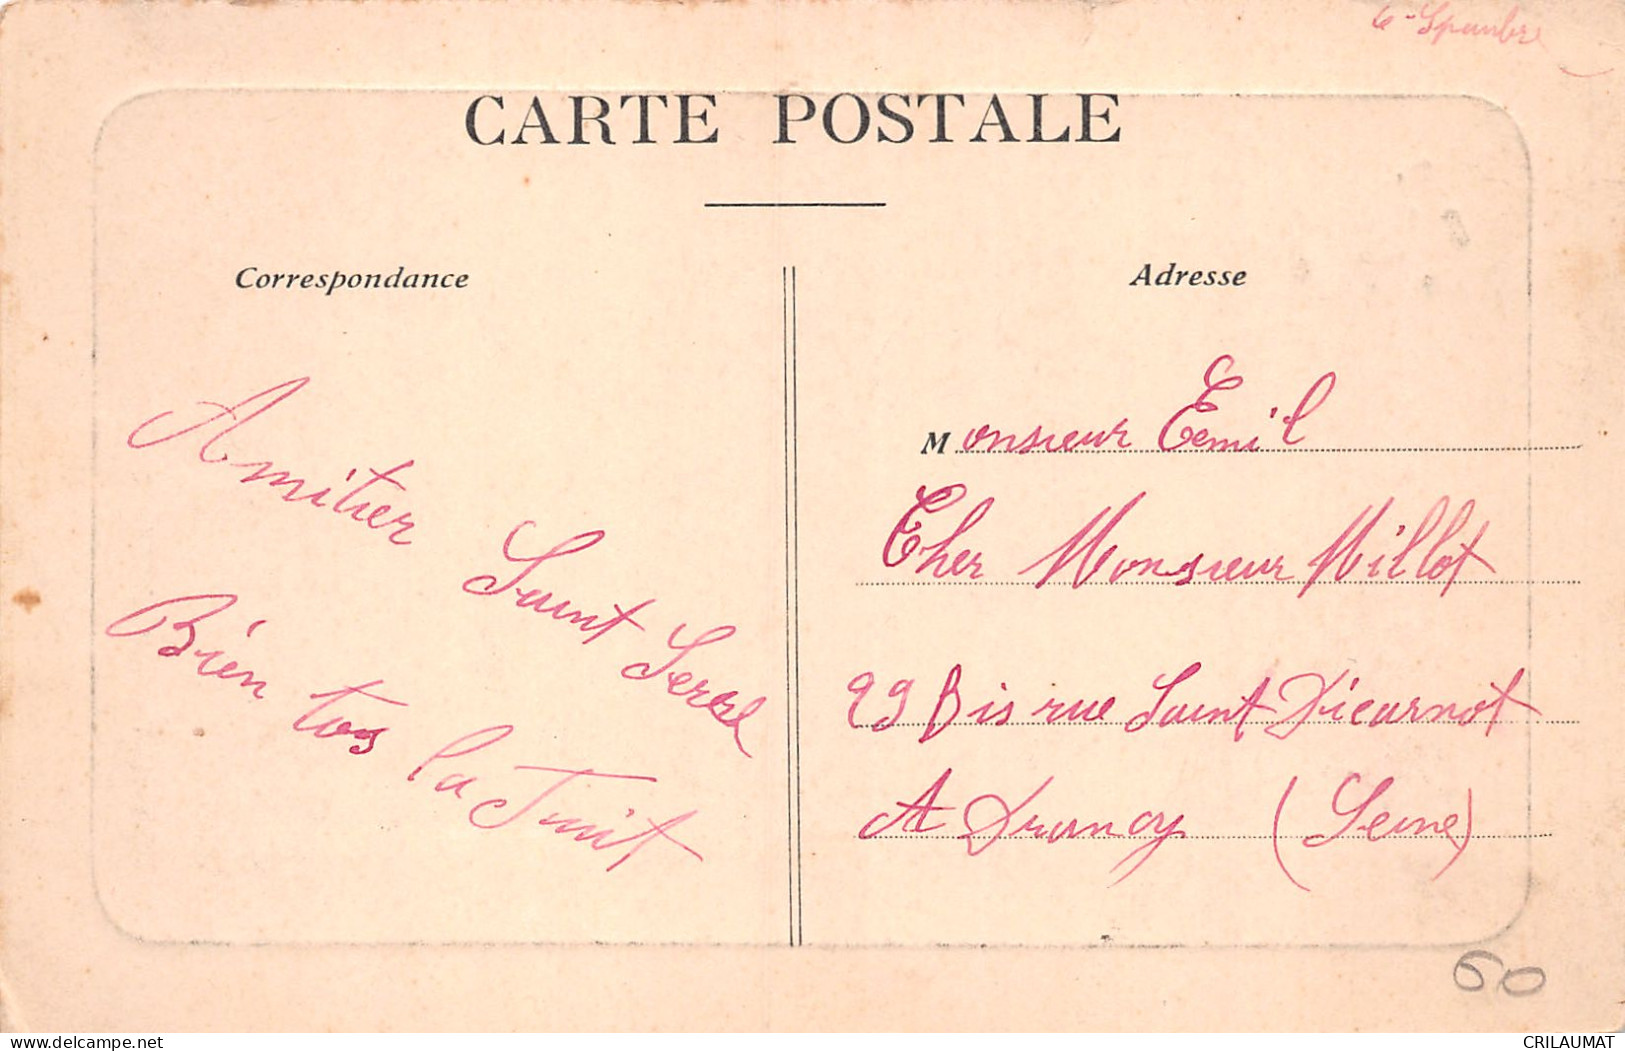 CARTE POSTALE
Correspondance
Amitier Saint Serre
Bien tos la Juit
Adresse
Monsieur Eemil
Cher Monsieur Millot
29 Bis rue Saint
A Drancy (Seine)
60
delcampe.net
CRILAUMAT